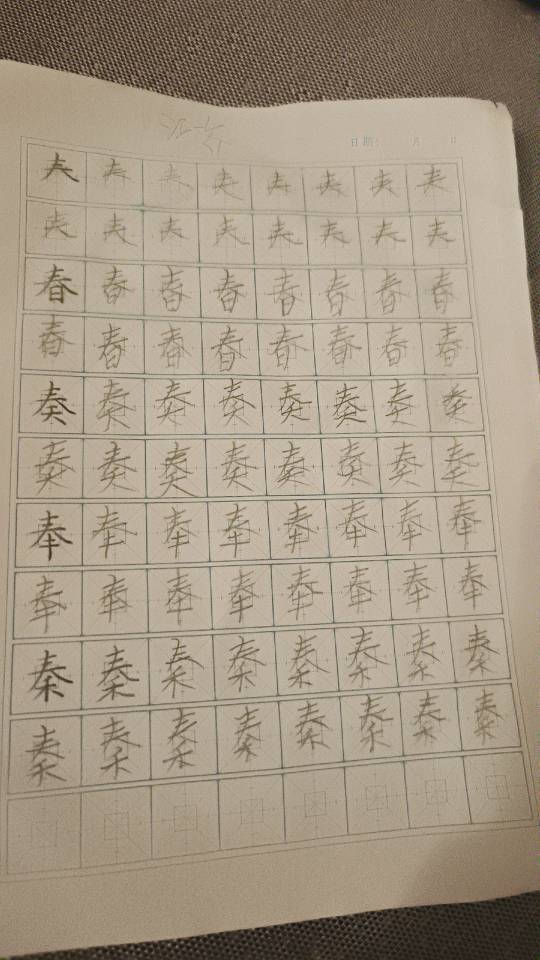 日期: 月 日
春春春春春春春春
春春春春春春春春
奏奏奏奏奏奏奏奏
奏奏奏奏奏奏奏奏
奉奉奉奉奉奉奉奉
奉奉奉奉奉奉奉奉
秦秦秦秦秦秦秦秦
秦秦秦秦秦秦秦秦